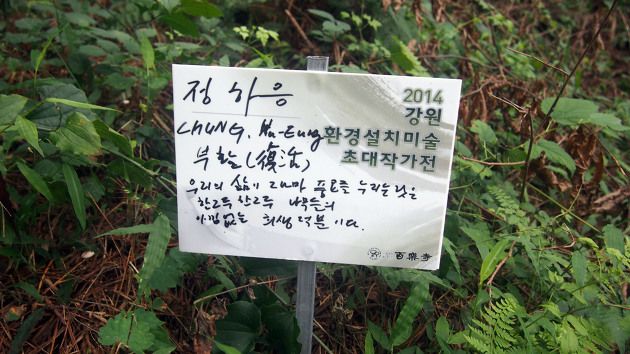 정하응
CHUNG, Ha-Eung
부활(復活)
우리의 삶이 그나마 풍요를 누리는 것은
한그루 한그루 나무들의
아낌없는 희생 덕분이다.
2014
강원
환경설치미술
초대작가전
百樂寺